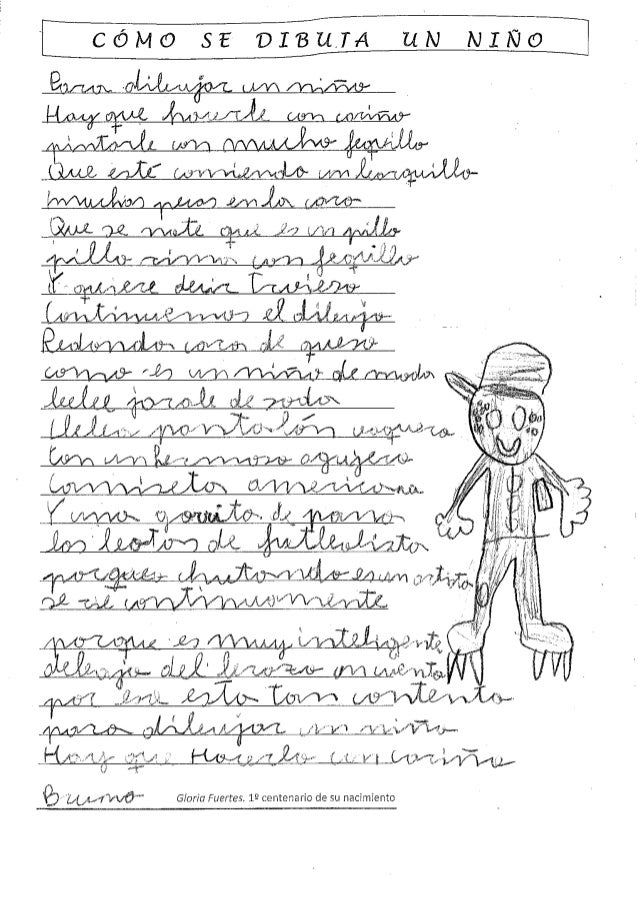 CÓMO SE DIBUJA UN NIÑO
Para dibujar un niño
Hay que hacerle con cariño
pintarle con mucho fequillo
Que esté comiendo un barquillo
muchas pecas en la cara
Que se note que es un pillo
pillo rima con fequillo
Y quiere decir Travieso
Continuemos el dibujo
Redonda cara de queso
como es un niño de moda
bebe jarabe de soda
lleba pantalón vaquero
con un hermoso agujero
Camiseta americana
Y una gorrita de pana
las botas de futbolista
porque chutando es un artista
se rie continuamente
porque es muy inteligente
debajo del brazo un cuento
por eso esta tan contento
para dibujar un niño
Hay que Hacerlo con cariño
Bruno
Gloria Fuertes. 1º centenario de su nacimiento